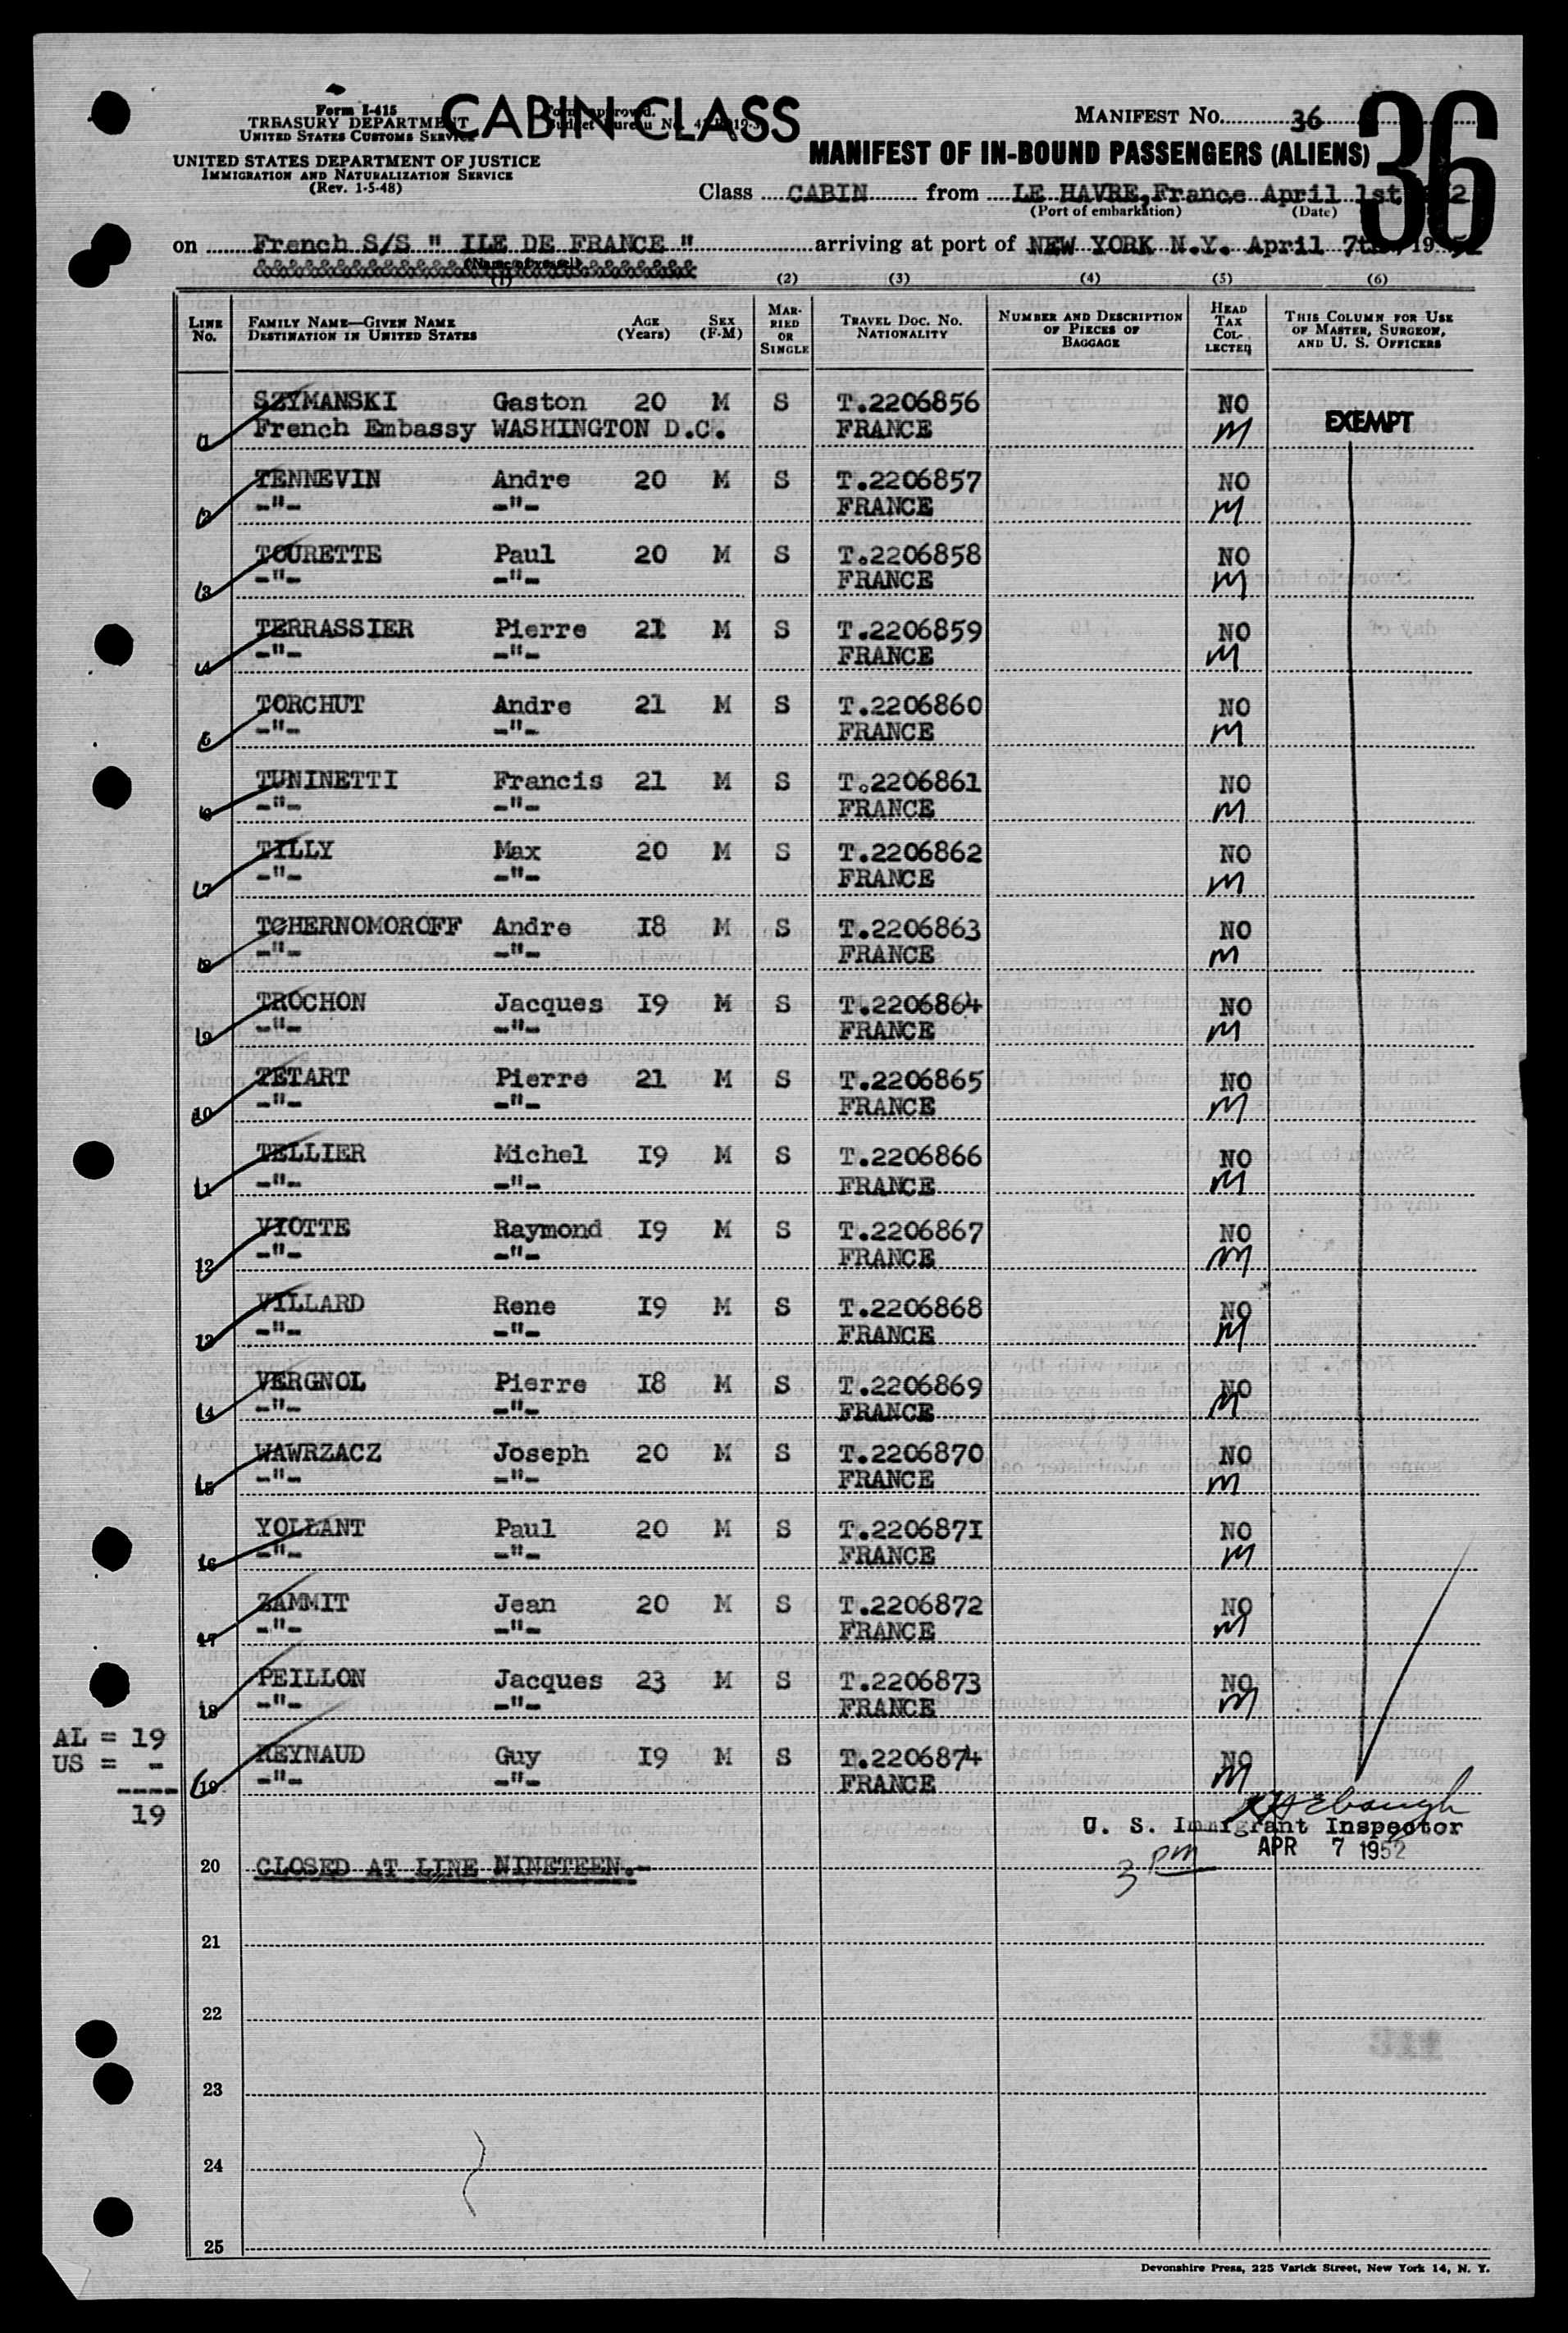 Form I-415
TREASURY DEPARTMENT
UNITED STATES CUSTOMS SERVICE
CABIN CLASS
Form approved.
Budget Bureau No.
MANIFEST No. 36
36
UNITED STATES DEPARTMENT OF JUSTICE
IMMIGRATION AND NATURALIZATION SERVICE
(Rev. 1-5-48)
MANIFEST OF IN-BOUND PASSENGERS (ALIENS)
Class CABIN from LE HAVRE, France April 1st
(Port of embarkation) (Date)
on French S/S " ILE DE FRANCE " arriving at port of NEW YORK N.Y. April 7th, 1952
(Name of vessel)
(1) (2) (3) (4) (5) (6)
LINE No. FAMILY NAME—GIVEN NAME DESTINATION IN UNITED STATES AGE (Years) SEX (F-M) MARRIED OR SINGLE TRAVEL DOC. No. NATIONALITY NUMBER AND DESCRIPTION OF PIECES OF BAGGAGE HEAD TAX COLLECTED THIS COLUMN FOR USE OF MASTER, SURGEON, AND U. S. OFFICERS
SZYMANSKI Gaston 20 M S T.2206856 NO EXEMPT
1 French Embassy WASHINGTON D.C. FRANCE M
TENNEVIN Andre 20 M S T.2206857 NO
2 -"- -"- FRANCE M
TOURETTE Paul 20 M S T.2206858 NO
3 -"- -"- FRANCE M
TERRASSIER Pierre 21 M S T.2206859 NO
4 -"- -"- FRANCE M
TORCHUT Andre 21 M S T.2206860 NO
5 -"- -"- FRANCE M
TUNINETTI Francis 21 M S T.2206861 NO
6 -"- -"- FRANCE M
TILLY Max 20 M S T.2206862 NO
7 -"- -"- FRANCE M
TCHERNOMOROFF Andre I8 M S T.2206863 NO
8 -"- -"- FRANCE M
TROCHON Jacques I9 M S T.2206864 NO
9 -"- -"- FRANCE M
TETART Pierre 21 M S T.2206865 NO
10 -"- -"- FRANCE M
TELLIER Michel I9 M S T.2206866 NO
11 -"- -"- FRANCE M
VIOTTE Raymond I9 M S T.2206867 NO
12 -"- -"- FRANCE M
VILLARD Rene I9 M S T.2206868 NO
13 -"- -"- FRANCE M
VERGNOL Pierre I8 M S T.2206869 NO
14 -"- -"- FRANCE M
WAWRZACZ Joseph 20 M S T.2206870 NO
15 -"- -"- FRANCE M
YOLLANT Paul 20 M S T.220687I NO
16 -"- -"- FRANCE M
ZAMMIT Jean 20 M S T.2206872 NO
17 -"- -"- FRANCE M
PEILLON Jacques 23 M S T.2206873 NO
18 -"- -"- FRANCE M
REYNAUD Guy I9 M S T.2206874 NO
19 -"- -"- FRANCE M
AL = 19
US = -
----
19
U. S. Immigrant Inspector
APR 7 1952
3 pm
20 CLOSED AT LINE NINETEEN.-
21
22
23
24
25
Devonshire Press, 225 Varick Street, New York 14, N. Y.